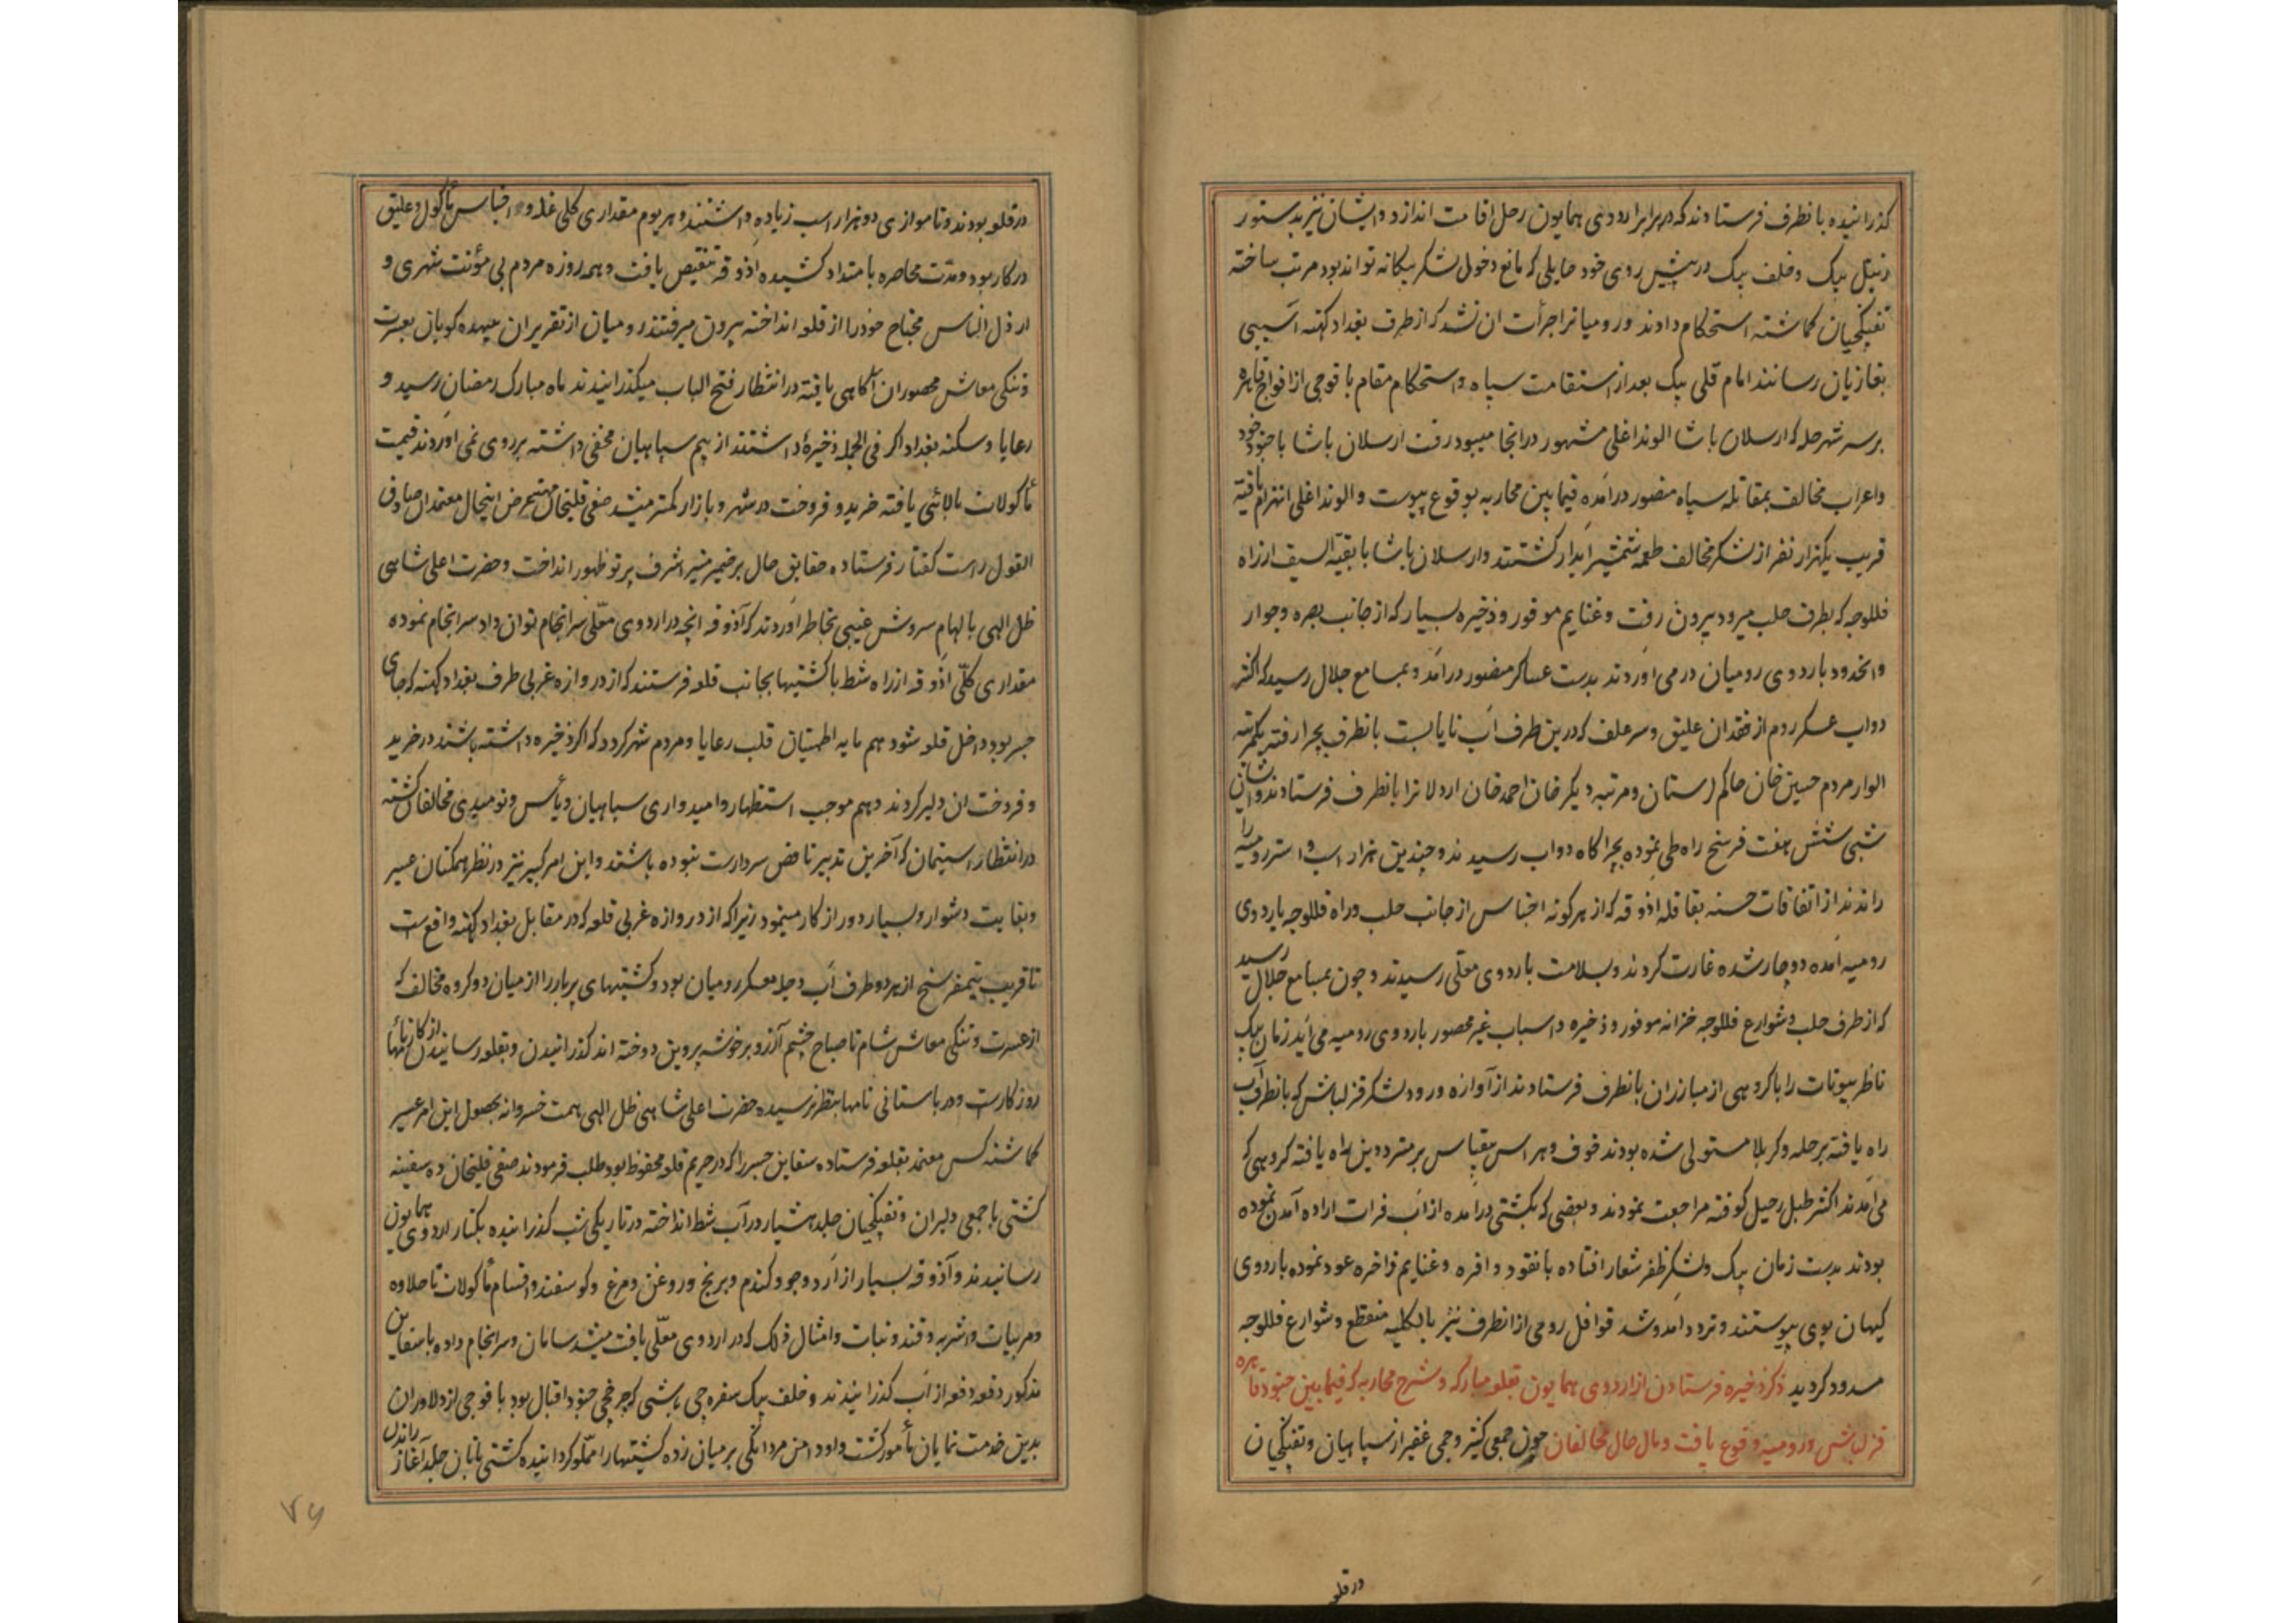 گذرانیده بانطرف فرستادند که در برابر اردوی همایون رحل اقامت اندازد و ایشان نیز بدستور
زینل بیک و خلف بیک در پیش روی خود حایلی که مانع دخول لشکر بیکانه تواند بود مرتب ساخته
تفنکچیان کماشته استحکام دادند و رومیانرا جرأت ان نشد که از طرف بغداد کهنه آسیبی
بغازیان رسانند امام قلی بیک بعد از استقامت سپاه و استحکام مقام با فوجی از افواج قاهره
بر سر شهر حله که ارسلان پاشا الوند اغلی مشهور در انجا میبود رفت ارسلان پاشا با جنود خود
و اعراب مخالف بمقاتله سپاه منصور در آمده فیما بین محاربه بوقوع پیوست و الوند اغلی انهزام یافته
قریب یکهزار نفر از لشکر مخالف طعمه شمشیر آبدار کشتند و ارسلان پاشا با بقیة السیف از راه
فللوجه که بطرف حلب میرود بیرون رفت و غنایم موفور و ذخیره بسیار که از جانب بصره و جوار
و انحدود باردوی رومیان در می اوردند بدست عساکر منصور درآمد و بمسامع جلال رسید که اکثر
دواب عسکر روم از فقدان علیق و سر علف که درین طرف آب نایابست بانطرف بچرا رفته یکمرتبه
الوار مردم حسین خان حاکم لرستان و مرتبه دیکر خان احمد خان اردلانرا بانطرف فرستادند و ایشان
شبی شش هفت فرسخ راه طی نموده بچراکاه دواب رسیدند و چندین هزار اسب و استر رومیه را
راندند از اتفاقات حسنه بقافله اذوقه که از هرکونه اجناس از جانب حلب و راه فللوجه باردوی
رومیه آمده دوچار شده غارت کردند و بسلامت باردوی معلی رسیدند و چون بمسامع جلال رسید
که از طرف حلب و شوارع فللوجه خزانه موفور و ذخیره و اسباب غیر محصور باردوی رومیه می آید زمان بیک
ناظر بیوتات را با کروهی از مبارزان بانطرف فرستادند از آوازه ورود لشکر قزلباش که بانطرف آب
راه یافته بر حله و کربلا مستولی شده بودند خوف و هراس بیقیاس بر مترددین راه یافته کروهی که
می آمدند اکثر طبل رحیل کوفته مراجعت نمودند و بعضی که بکشتی درآمده از آب فرات اراده آمدن نموده
بودند بدست زمان بیک و لشکر ظفر شعار افتاده با نقود وافره و غنایم فاخره عود نموده باردوی
کیهان پوی پیوستند و تردد و آمد و شد قوافل رومی از انطرف نیز بالکلیه منقطع و شوارع فللوجه
مسدود کردید ذکر ذخیره فرستادن از اردوی همایون بقلعه مبارکه و شرح محاربه که فیما بین جنود قاهره
قزلباش و رومیه وقوع یافت و مآل حال مخالفان چون جمعی کثیر و جمی غفیر از سپاهیان و تفنکچیان
در قلعه
در قلعه بودند و تا موازی دو هزار اسب زیاده داشتند و هر یوم مقداری کلی غله و اجناس مأکول و علیق
در کار بود و مدت محاصره بامتداد کشیده اذوقه تنقیص یافت و همه روزه مردم بی مؤنت شهری و
ارذل الناس محتاج خود را از قلعه انداخته بیرون میرفتند رومیان از تقریر ان بیهده کویان بعسرت
و تنکی معاش محصوران آکاهی یافته در انتظار فتح الباب میکذرانیدند ماه مبارک رمضان رسید و
رعایا و سکنه بغداد اکر فی الجمله ذخیرهٔ داشتند از بیم سپاهیان مخفی داشته بر روی نمی آوردند قیمت
مأکولات بالائی یافته خرید و فروخت در شهر و بازار کمتر میشد صفی قلیخان بهتر عرض اینحال معتمدان صادق
القول راست کفتار فرستاده حقایق حال بر ضمیر منیر اشرف پرتو ظهور انداخت و حضرت اعلی شاهی
ظل الهی بالهام سروش غیبی بخاطر آوردند که آذوقه انچه در اردوی معلی سرانجام توان داد سرانجام نموده
مقداری کلی اذوقه از راه شط با کشتیها بجانب قلعه فرستند که از دروازه غربی طرف بغداد کهنه که جای
جسر بود داخل قلعه شود هم مایه اطمینان قلب رعایا و مردم شهر کردد که اکر ذخیره داشته باشند در خرید
و فروخت ان دلیر کردند و هم موجب استظهار و امیدواری سپاهیان و یأس و نومیدی مخالفان کشته
در انتظار استیمان که آخرین تدبیر ناقص سردارست نبوده باشند و این امر کبیر نیز در نظر همکنان عسیر
و بغایت دشوار و بسیار دور از کار مینمود زیرا که از دروازه غربی قلعه که در مقابل بغداد کهنه واقع است
تا قریب نیمفرسخ از هر دو طرف آب دجله معسکر رومیان بود و کشتیهای پربار را از میان دو کروه مخالف که
از عسرت و تنکی معاش شام تا صباح چشم آرزو بر خوشه پروین دوخته اند کذرانیدن و بقلعه رسانیدن از کارنامهای
روزکارست و در باستانی نامها بنظر نرسیده حضرت اعلی شاهی ظل الهی همت خسروانه بحصول این امر عسیر
کماشته کس معتمد بقلعه فرستاده سفاین جسر را که در حریم قلعه محفوظ بود طلب فرمودند صفی قلیخان ده سفینه
کشتی با جمعی دلیران و تفنکچیان جلد هشیار در آب شط انداخته در تاریکی شب کذرانیده بکنار اردوی همایون
رسانیدند و آذوقه بسیار از آرد و جو و کندم و برنج و روغن و مرغ و کوسفند و اقسام مأکولات تا حلاوه
و مربیات و اشربه و قند و نبات و امثال ذلک که در اردوی معلی یافت میشد سامان و سرانجام داده با سفاین
مذکور دفعه دفعه از آب کذرانیدند و خلف بیک سفره چی باشی که چرخچی جنود اقبال بود با فوجی از دلاوران
بدین خدمت نمایان مأمور کشت و او دامن مردانکی بر میان زده کشتیها را مملو کردانیده کشتی بانان جلد آغاز راندن
۷۶